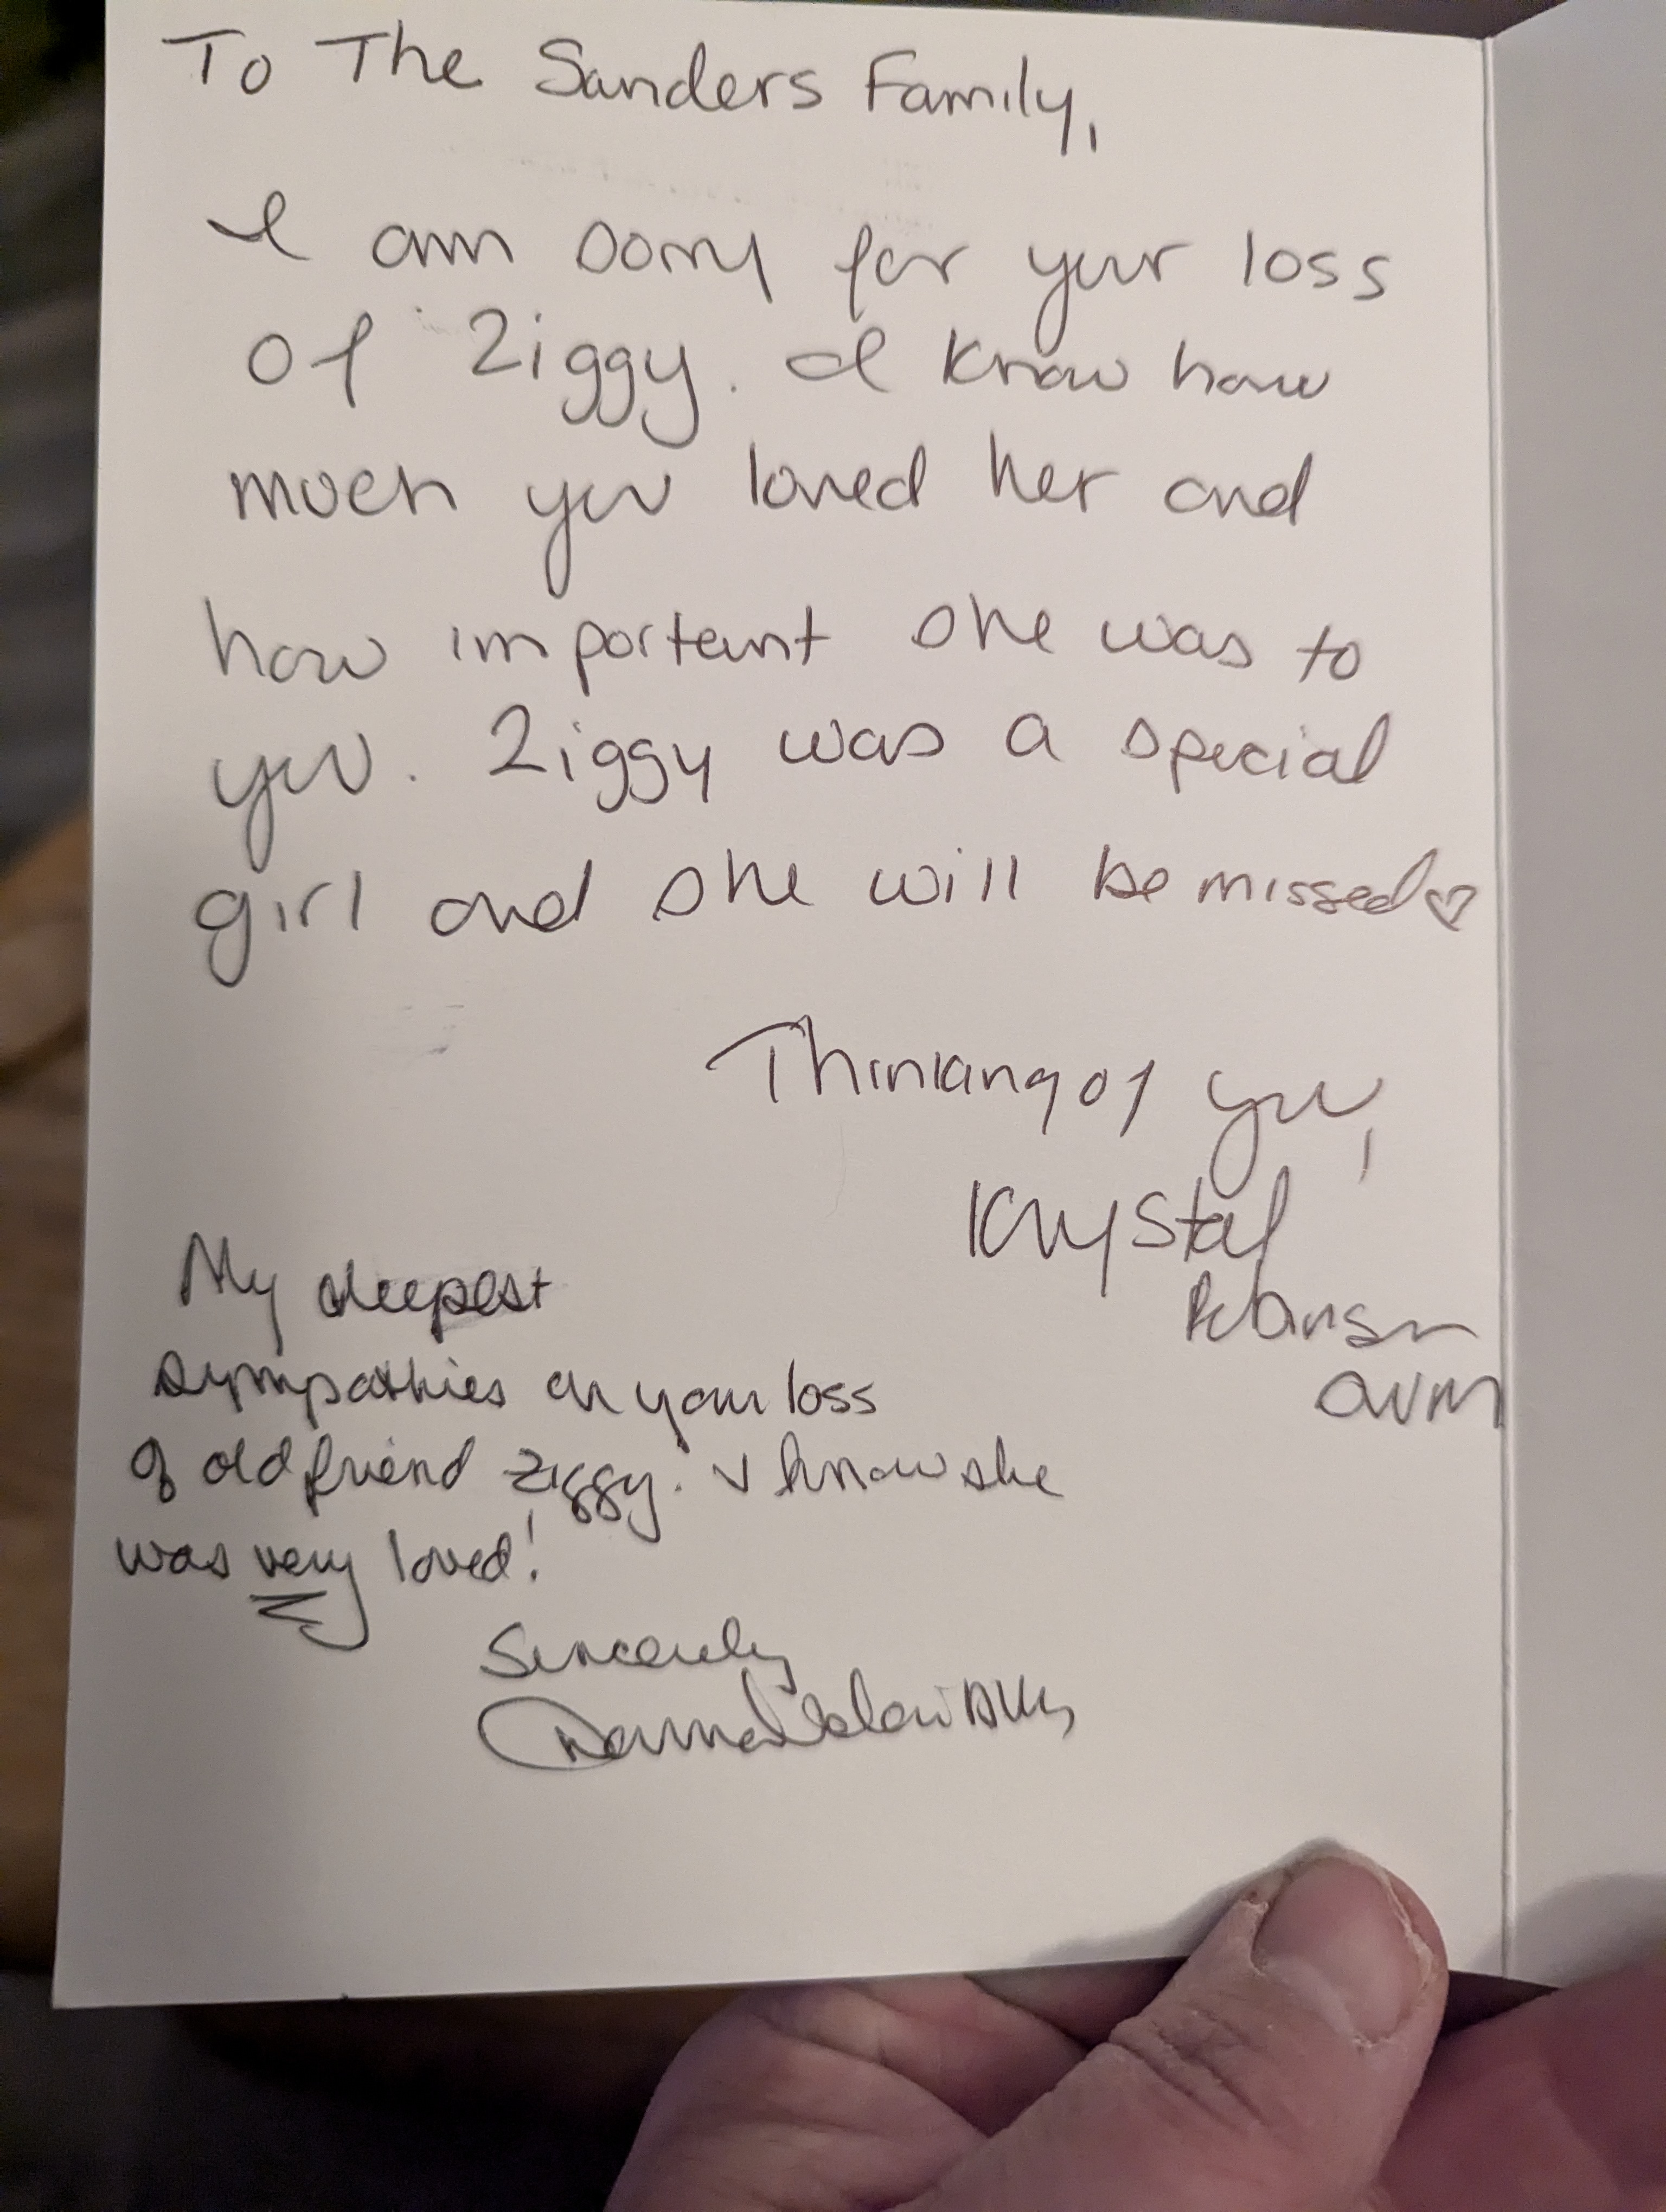 To The Sanders Family,
I am sorry for your loss
of Ziggy. I know how
much you loved her and
how important she was to
you. Ziggy was a special
girl and she will be missed♡
Thinking of you,
Krystal
DVM
My deepest
sympathies on your loss
of old friend Ziggy. I know she
was very loved!
Sincerely
DVM